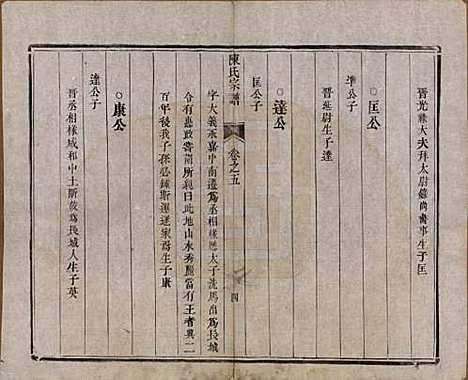 晉光祿大夫拜太尉錄尚書事生子匡
○匡公
準公子
晉延尉生子達
○達公
匡公子
陳氏宗譜
卷之五
四
字大義永嘉中南遷爲丞相掾歷太子洗馬出爲長城
令有惠政嘗謂所親曰此地山水秀麗當有王者興二
百年後我子孫必鍾斯運遂家焉生子康
○康公
達公子
晉丞相掾咸和中土斷故爲長城人生子英